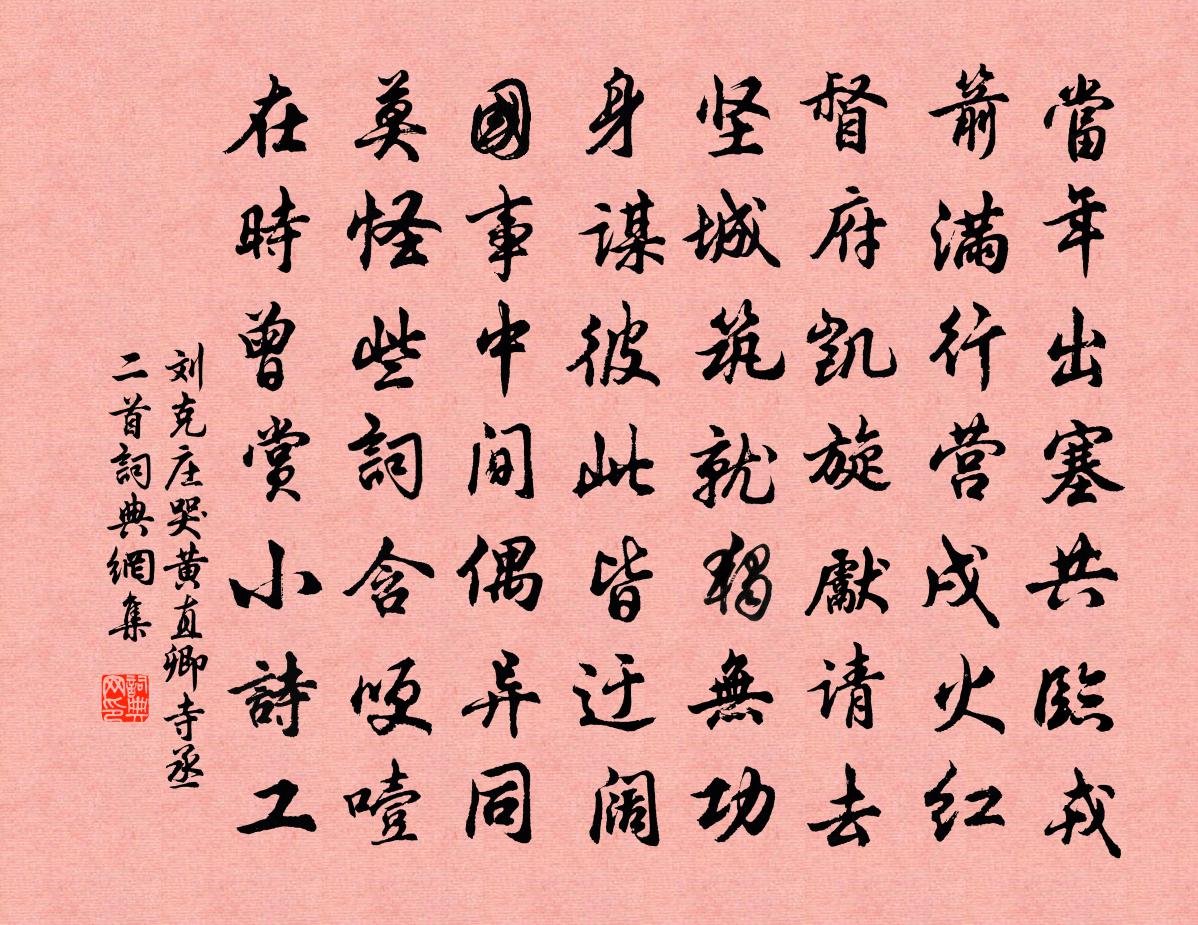 當年出塞共臨戎
箭滿行营戍火紅
督府凱旋獻请去
坚城筑就獨無功
身謀彼此皆迂阔
國事中間偶异同
莫怪些詞含哽噎
在時曾赏小詩工
刘克庄哭黄直卿寺丞
二首詞典網集
詞典
网印